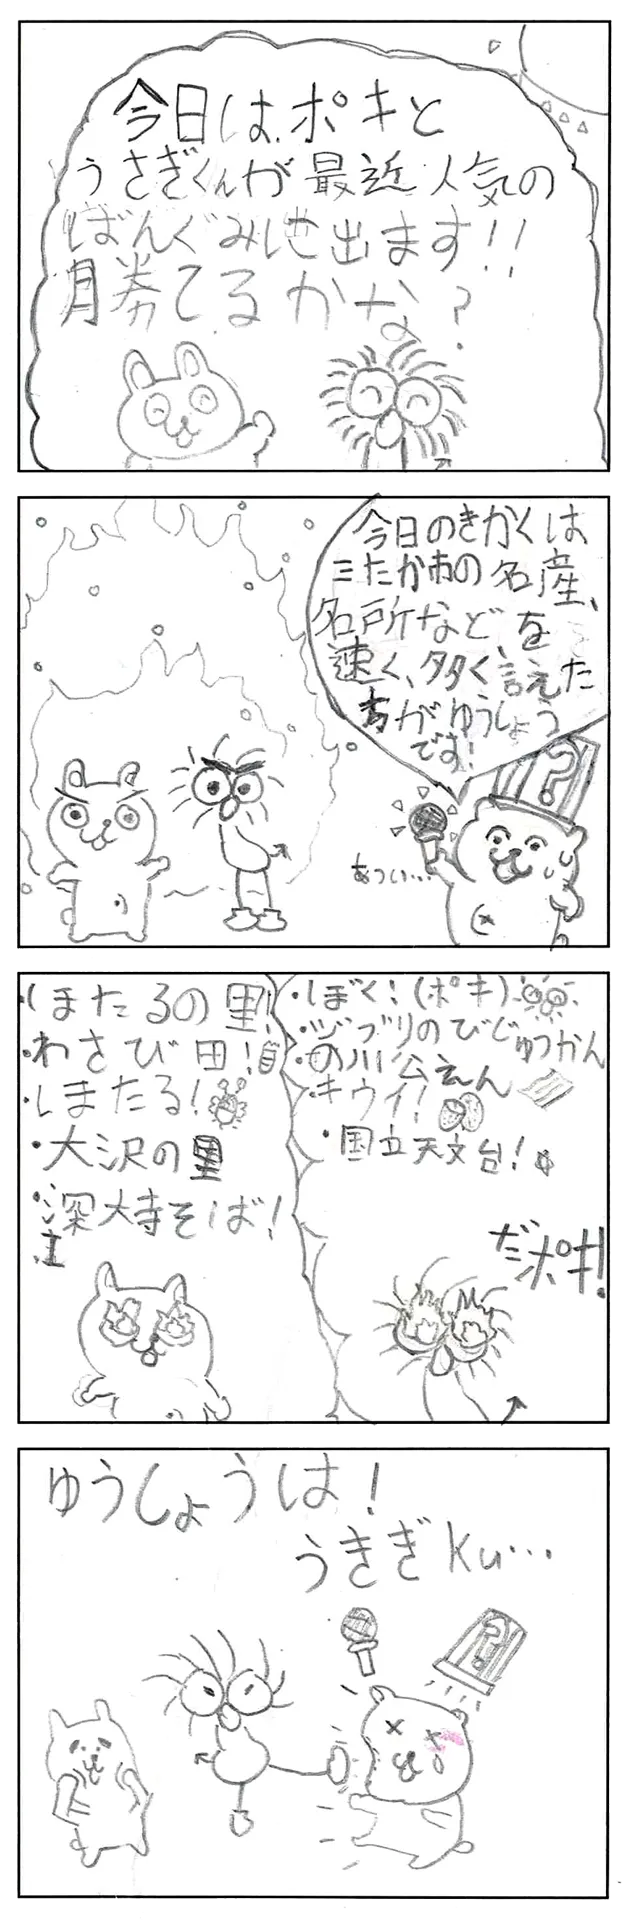 今日は、ポキと
うさぎくんが最近人気の
ばんぐみに出ます!!
勝てるかな?
今日のきかくは
三たか市の名産、
名所などを
速く、多く言えた
方がゆうしょう
です!
あつい…
・ほたるの里!
・わさび田!
・ほたる!
・大沢の里
・深大寺そば!
・ぼく!(ポキ)
・ジブリのびじゅつかん
・の川公えん
・キウイ!
・国立天文台!
だポキ!
ゆうしょうは!
うきぎku…